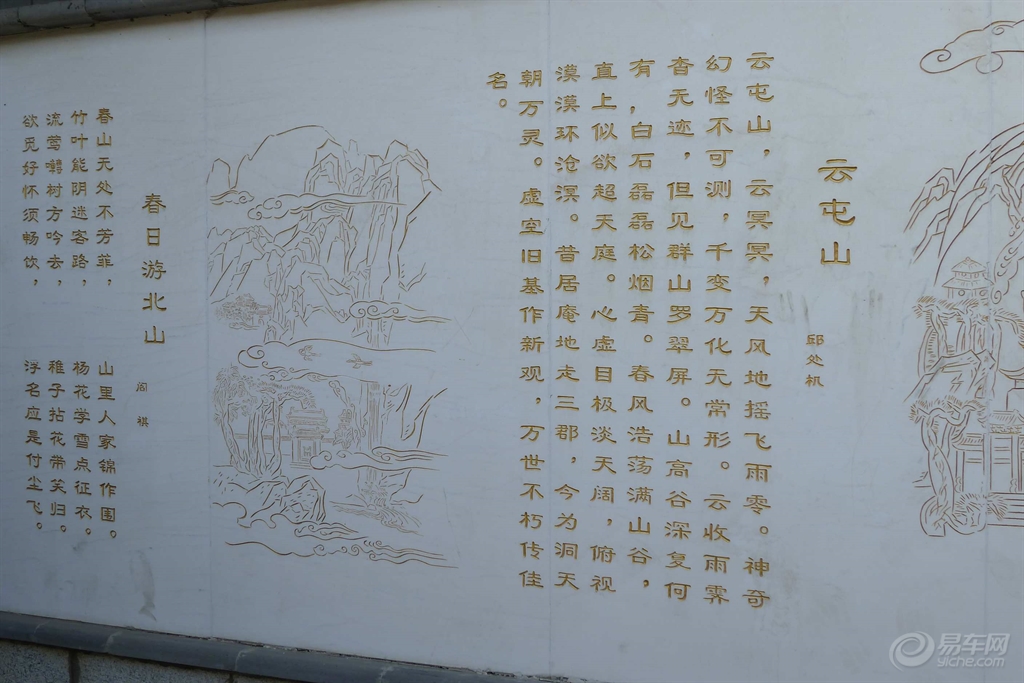 云屯山
邱处机
云屯山，云冥冥，天风地摇飞雨零。神奇
幻怪不可测，千变万化无常形。云收雨霁
杳无迹，但见群山罗翠屏。山高谷深复何
有，白石磊磊松烟青。春风浩荡满山谷，
直上似欲超天庭。心虚目极淡天阔，俯视
漠漠环沧溟。昔居庵地走三郡，今为洞天
朝万灵。虚空旧基作新观，万世不朽传佳
名。
春日游北山
阎祺
春山无处不芳菲，山里人家锦作围。
竹叶能阴迷客路，杨花学雪点征衣。
流莺村方吟去，稚子拈花带笑归。
欲觅好怀须畅饮，浮名应是付尘飞。
易车网
yiche.com